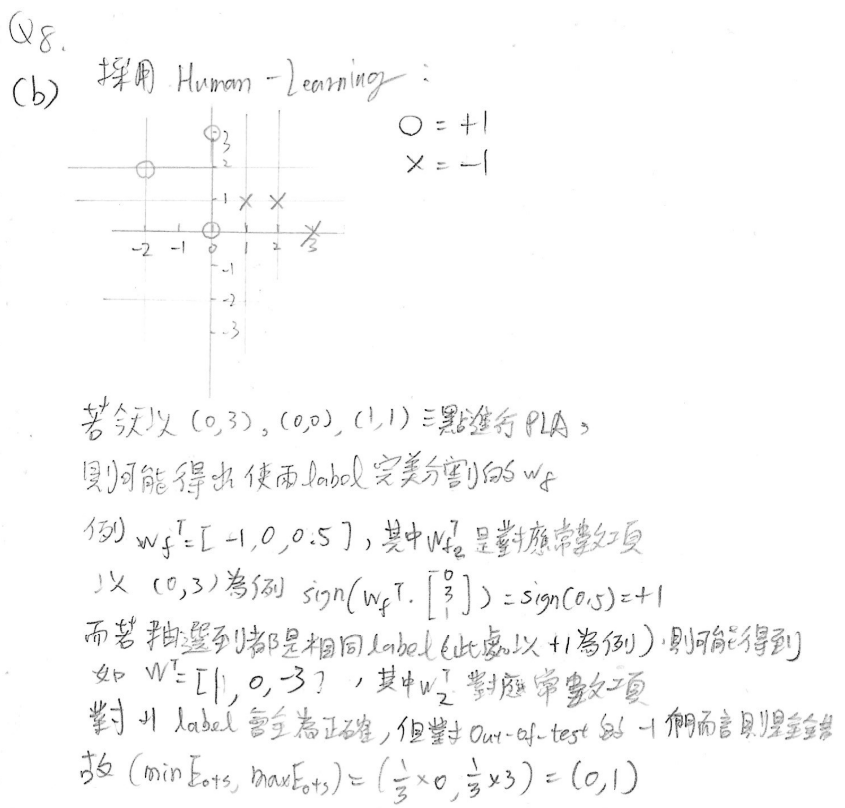 Q8.
(b) 採用 Human-Learning :
O = +1
× = -1
3
2
1
-2 -1 0 1 2 3
-1
-2
-3
若今天以 (0,3)、(0,0), (1,1) 三點進行 PLA,
則可能得出使兩 label 完美分割的 wf
例 wf^T = [-1, 0, 0.5], 其中 wf2^T 是對應常數項
以 (0,3) 為例 sign(wf^T · [0 3 1]) = sign(0.5) = +1
而若抽選到都是相同 label (此處以 +1 為例) 則可能得到
如 W^T = [1, 0, -3], 其中 w2^T 對應常數項
對 +1 label 會全為正確, 但對 Out-of-test 的 -1 們而言則是全錯
故 (min Eots, max Eots) = (1/3 × 0, 1/3 × 3) = (0, 1)